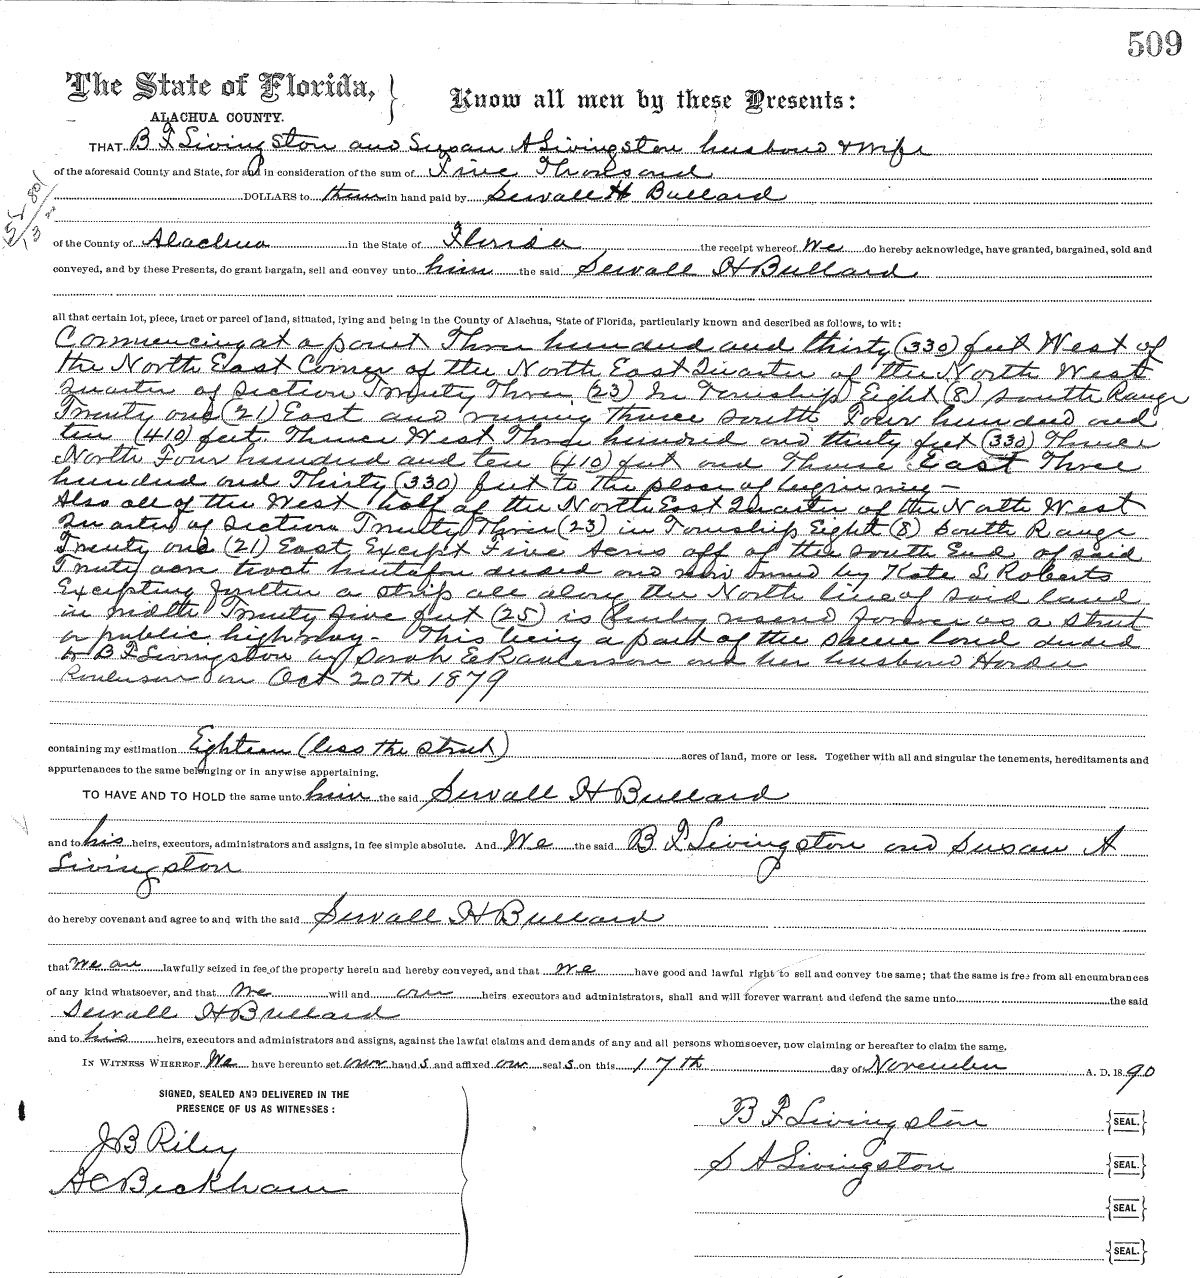 509
The State of Florida, } Know all men by these Presents:
ALACHUA COUNTY.
THAT B F Livingston and Susan A Livingston husband & wife
of the aforesaid County and State, for and in consideration of the sum of Five Thousand
DOLLARS to them in hand paid by Sewall H Bullard
of the County of Alachua in the State of Florida the receipt whereof we do hereby acknowledge, have granted, bargained, sold and
conveyed, and by these Presents, do grant bargain, sell and convey unto him the said Sewall H Bullard
all that certain lot, piece, tract or parcel of land, situated, lying and being in the County of Alachua, State of Florida, particularly known and described as follows, to wit:
Commencing at a point Three hundred and thirty (330) feet West of
the North East Corner of the North East Quarter of the North West
Quarter of Section Twenty Three (23) In Township Eight (8) South Range
Twenty one (21) East and running Thence South Four hundred and
ten (410) feet. Thence West Three hundred and thirty feet (330) Thence
North Four hundred and ten (410) feet and Thence East Three
hundred and Thirty (330) feet to the place of beginning –
Also all of the West half of the North East Quarter of the North West
Quarter of Section Twenty Three (23) in Township Eight (8) South Range
Twenty one (21) East Except Five Acres off of the South End of said
Twenty acre tract heretofore deeded and now owned by Kate S Roberts
Excepting further a strip all along the North line of said land
in width Twenty five feet (25) is hereby reserved forever as a street
or public highway – This being a part of the same land deeded
to B F Livingston by Sarah E Raulerson and her husband
on Oct 20th 1879
containing my estimation Eighteen (less the street) acres of land, more or less. Together with all and singular the tenements, hereditaments and
appurtenances to the same belonging or in anywise appertaining.
TO HAVE AND TO HOLD the same unto him the said Sewall H Bullard
and to his heirs, executors, administrators and assigns, in fee simple absolute. And We the said B F Livingston and Susan A
Livingston
do hereby covenant and agree to and with the said Sewall H Bullard
that We are lawfully seized in fee of the property herein and hereby conveyed, and that we have good and lawful right to sell and convey the same; that the same is free from all encumbrances
of any kind whatsoever, and that we will and our heirs executors and administrators, shall and will forever warrant and defend the same unto the said
Sewall H Bullard
and to his heirs, executors and administrators and assigns, against the lawful claims and demands of any and all persons whomsoever, now claiming or hereafter to claim the same.
IN WITNESS WHEREOF We have hereunto set our hand s and affixed our seal s on this 17th day of November A. D. 1890
SIGNED, SEALED AND DELIVERED IN THE
PRESENCE OF US AS WITNESSES:
B F Livingston {SEAL.}
J B Riley
S A Livingston {SEAL.}
H C Beckham
{SEAL}
{SEAL.}